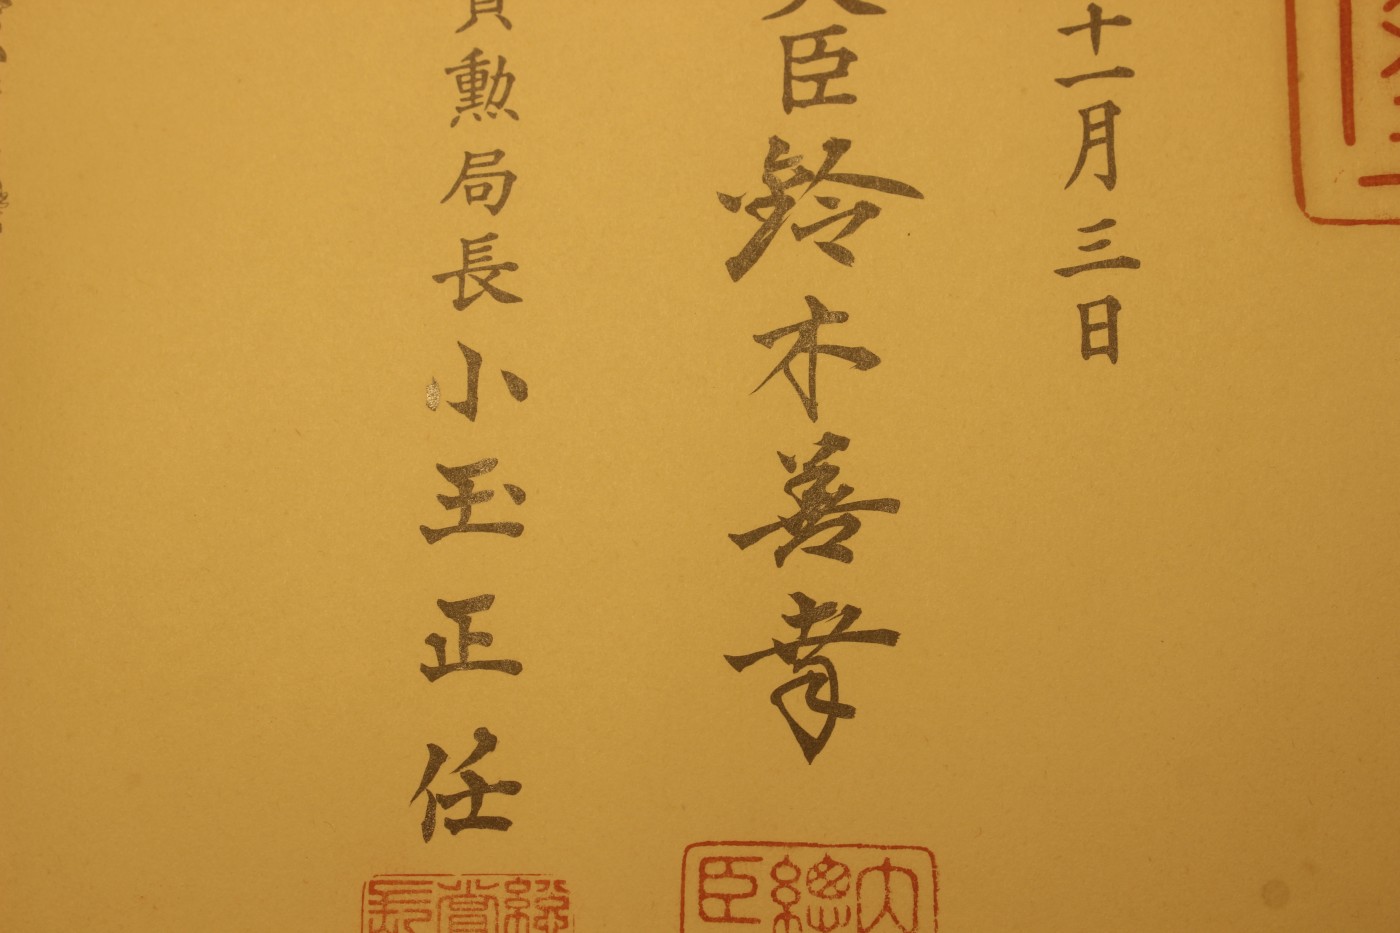 十一月三日
大臣鈴木善幸
賞勲局長小玉正任
内總臣
總賞長